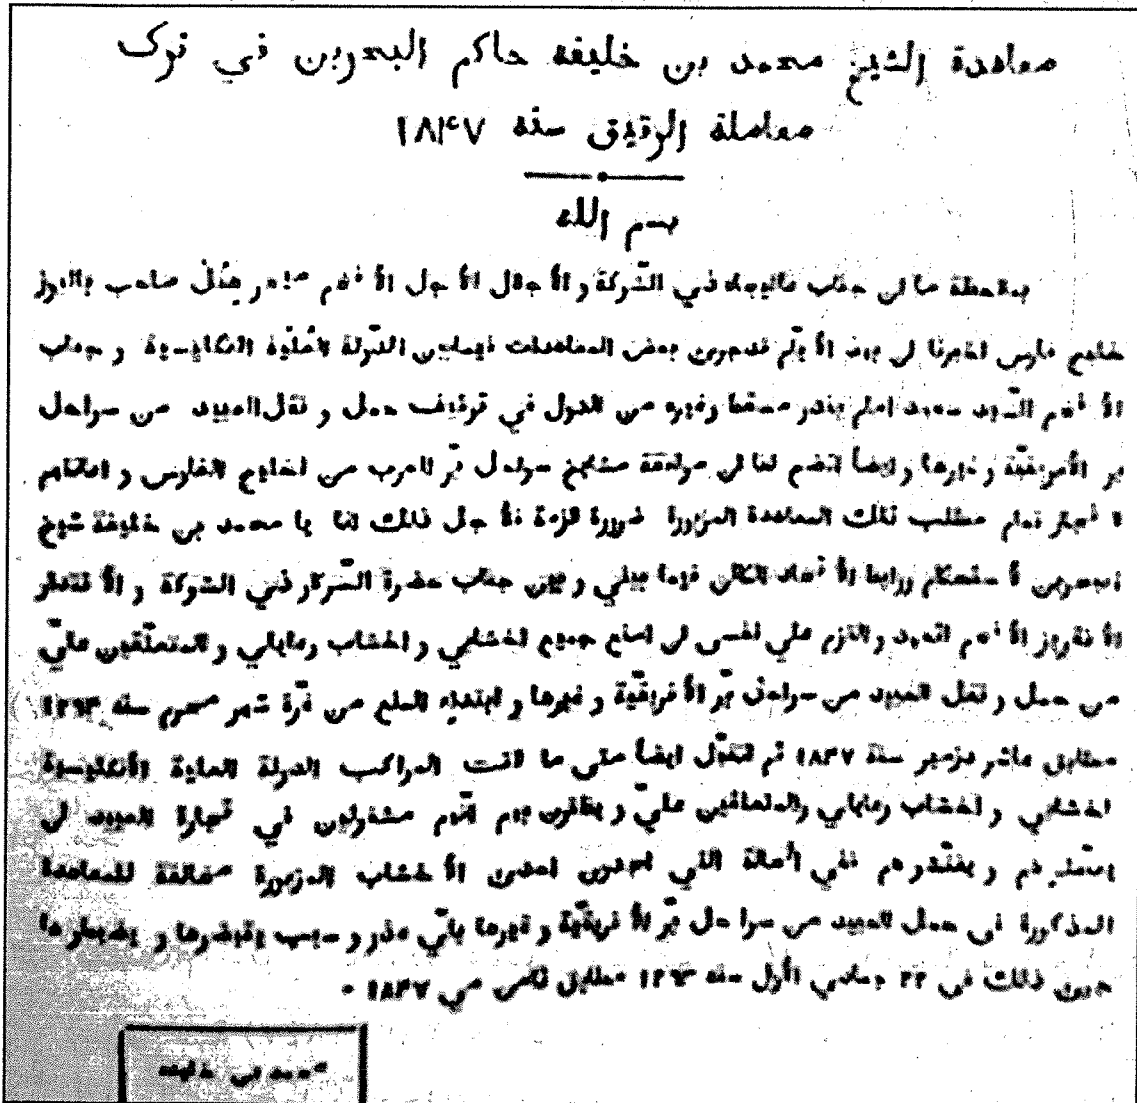 معاهدة الشيخ محمد بن خليفه حاكم البحرين في ترك
معاملة الرقيق سنه ١٨۴٧
بسم الله
بملاحظة جناب عاليجاه ذي الشّوكة و الأجلال الأجل الأفخم صاحب باليوز
خليج فارس بعض المعاهدات فيمابين الدّولة العليّة انكليسية و جناب
الأفخم السّيد سعيد امام بندر مسقط وغيره من الدول في توقيف حمل و نقل العبيد من سواحل
بر الأفريقيّة و غيرها و ايضاً موافقة مشايخ سواحل برّ العرب من لخليج الفارس و
تمام مطلب تلك المعاهدة المزبورة ضرورة لازمة فلأجل ذلك انا يا محمد بن خليفة شيخ
البحرين لأستحكام روابط الأتحاد الكائن فيما بيني وبين جناب حضرة السّركار ذي الشوكة و الأقتدار
الأفخم اتعهد والتزم علي نفسى ان امنع جميع اخشابي و اخشاب رعاياي و المتعلّقين عليّ
من حمل و نقل العبيد من سواحل برّ الأفريقيّة و غيرها و ابتداء المنع من غرّة شهر محرم سنه ١٢٦۴
مطابق عاشر دزمبر سنة ١٨۴٧ ثم اتقبّل ايضاً متى ما لاقت المراكب الدولة العلية الأنكليسية
اخشابي و اخشاب رعاياي والمتعلقين عليّ و يظنون بهم انّهم مشغولين في تجارة العبيد ان
و يفتّشوهم ففي الحالة التي احدى الأخشاب المزبورة مخالفة للمعاهدة
المذكورة فى حمل العبيد من سواحل برّ الأفريقيّة و غيرها بأيّ عذر و سبب يقبضوها و يضبطوها
ذلك فى ٢٢ جمادي الأول سنه ١٢٦٣ مطابق ثامن مي ١٨۴٧
محمد بن خليفه